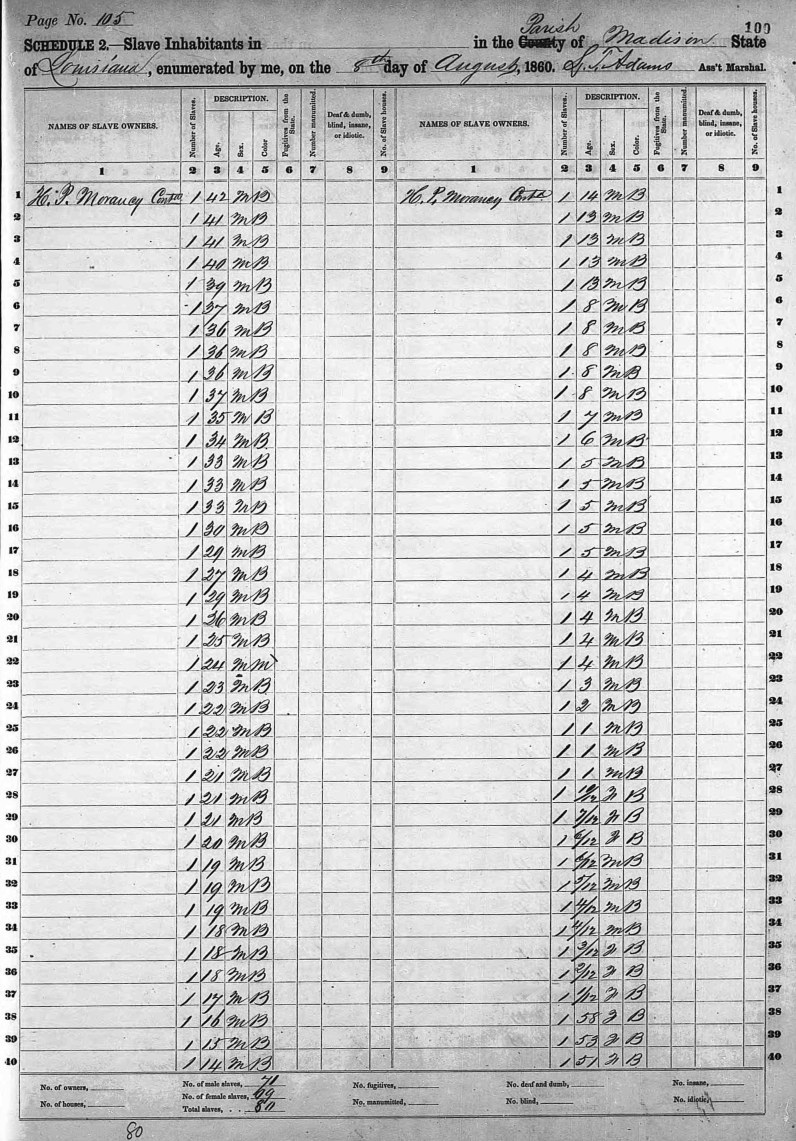 Page No. 105
100
SCHEDULE 2.—Slave Inhabitants in in the County Parish of Madison State
of Louisiana, enumerated by me, on the 8th day of August, 1860. Adams Ass't Marshal.
NAMES OF SLAVE OWNERS. Number of Slaves. DESCRIPTION. Age. Sex. Color Fugitives from the State. Number manumitted. Deaf & dumb, blind, insane, or idiotic. No. of Slave houses. NAMES OF SLAVE OWNERS. Number of Slaves. DESCRIPTION. Age. Sex. Color Fugitives from the State. Number manumitted. Deaf & dumb, blind, insane, or idiotic. No. of Slave houses.
1 2 3 4 5 6 7 8 9 1 2 3 4 5 6 7 8 9
1 H. P. Morancy Contd 1 42 M B H. P. Morancy Contd 1 14 M B 1
2 1 41 M B 1 13 M B 2
3 1 41 M B 1 13 M B 3
4 1 40 M B 1 13 M B 4
5 1 39 M B 1 13 M B 5
6 1 37 M B 1 8 M B 6
7 1 36 M B 1 8 M B 7
8 1 36 M B 1 8 M B 8
9 1 36 M B 1 8 M B 9
10 1 37 M B 1 8 M B 10
11 1 35 M B 1 7 M B 11
12 1 34 M B 1 6 M B 12
13 1 33 M B 1 5 M B 13
14 1 33 M B 1 5 M B 14
15 1 33 M B 1 5 M B 15
16 1 30 M B 1 5 M B 16
17 1 29 M B 1 5 M B 17
18 1 27 M B 1 4 M B 18
19 1 29 M B 1 4 M B 19
20 1 26 M B 1 4 M B 20
21 1 25 M B 1 4 M B 21
22 1 24 M M 1 4 M B 22
23 1 23 M B 1 3 M B 23
24 1 22 M B 1 2 M B 24
25 1 22 M B 1 1 M B 25
26 1 22 M B 1 1 M B 26
27 1 21 M B 1 1 M B 27
28 1 21 M B 1 10/12 F B 28
29 1 21 M B 1 7/12 F B 29
30 1 20 M B 1 6/12 F B 30
31 1 19 M B 1 6/12 M B 31
32 1 19 M B 1 5/12 M B 32
33 1 19 M B 1 4/12 M B 33
34 1 18 M B 1 4/12 M B 34
35 1 18 M B 1 3/12 F B 35
36 1 18 M B 1 2/12 F B 36
37 1 17 M B 1 1/12 F B 37
38 1 16 M B 1 58 F B 38
39 1 15 M B 1 53 F B 39
40 1 14 M B 1 51 F B 40
No. of owners, No. of male slaves, 71 No. fugitives, No. deaf and dumb, No. insane,
No. of houses, No. of female slaves, 69 No. manumitted, No. blind, No. idiotic,
Total slaves, 80
80